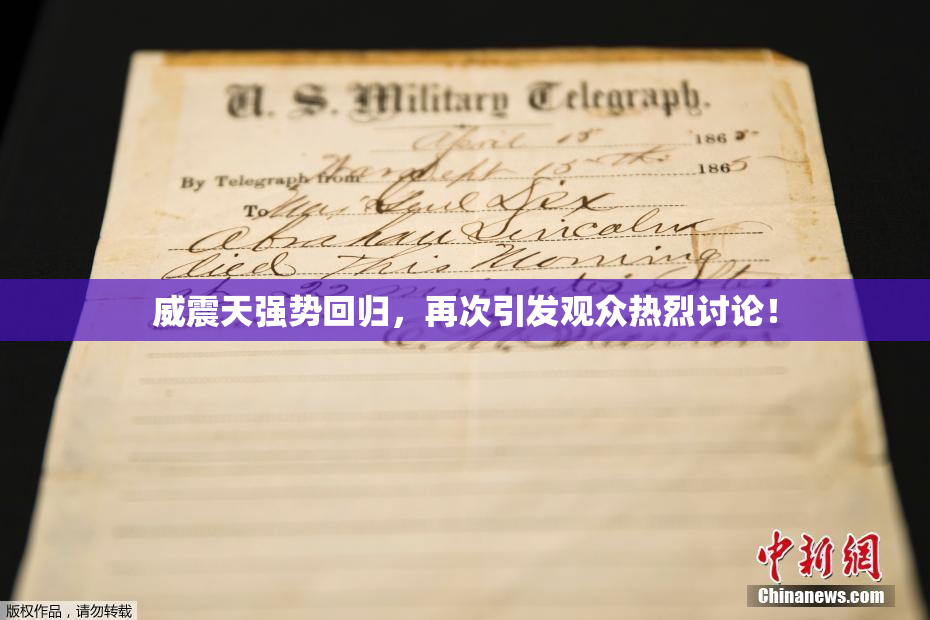 U. S. Military Telegraph.
April 15 1865
By Telegraph from War Dept 15th 1865
To Maj Genl Dix
Abraham Lincoln
died This Morning
at 22 minutes after
威震天强势回归，再次引发观众热烈讨论！
E. M. Stanton
中新網
Chinanews.com
版权作品，请勿转载